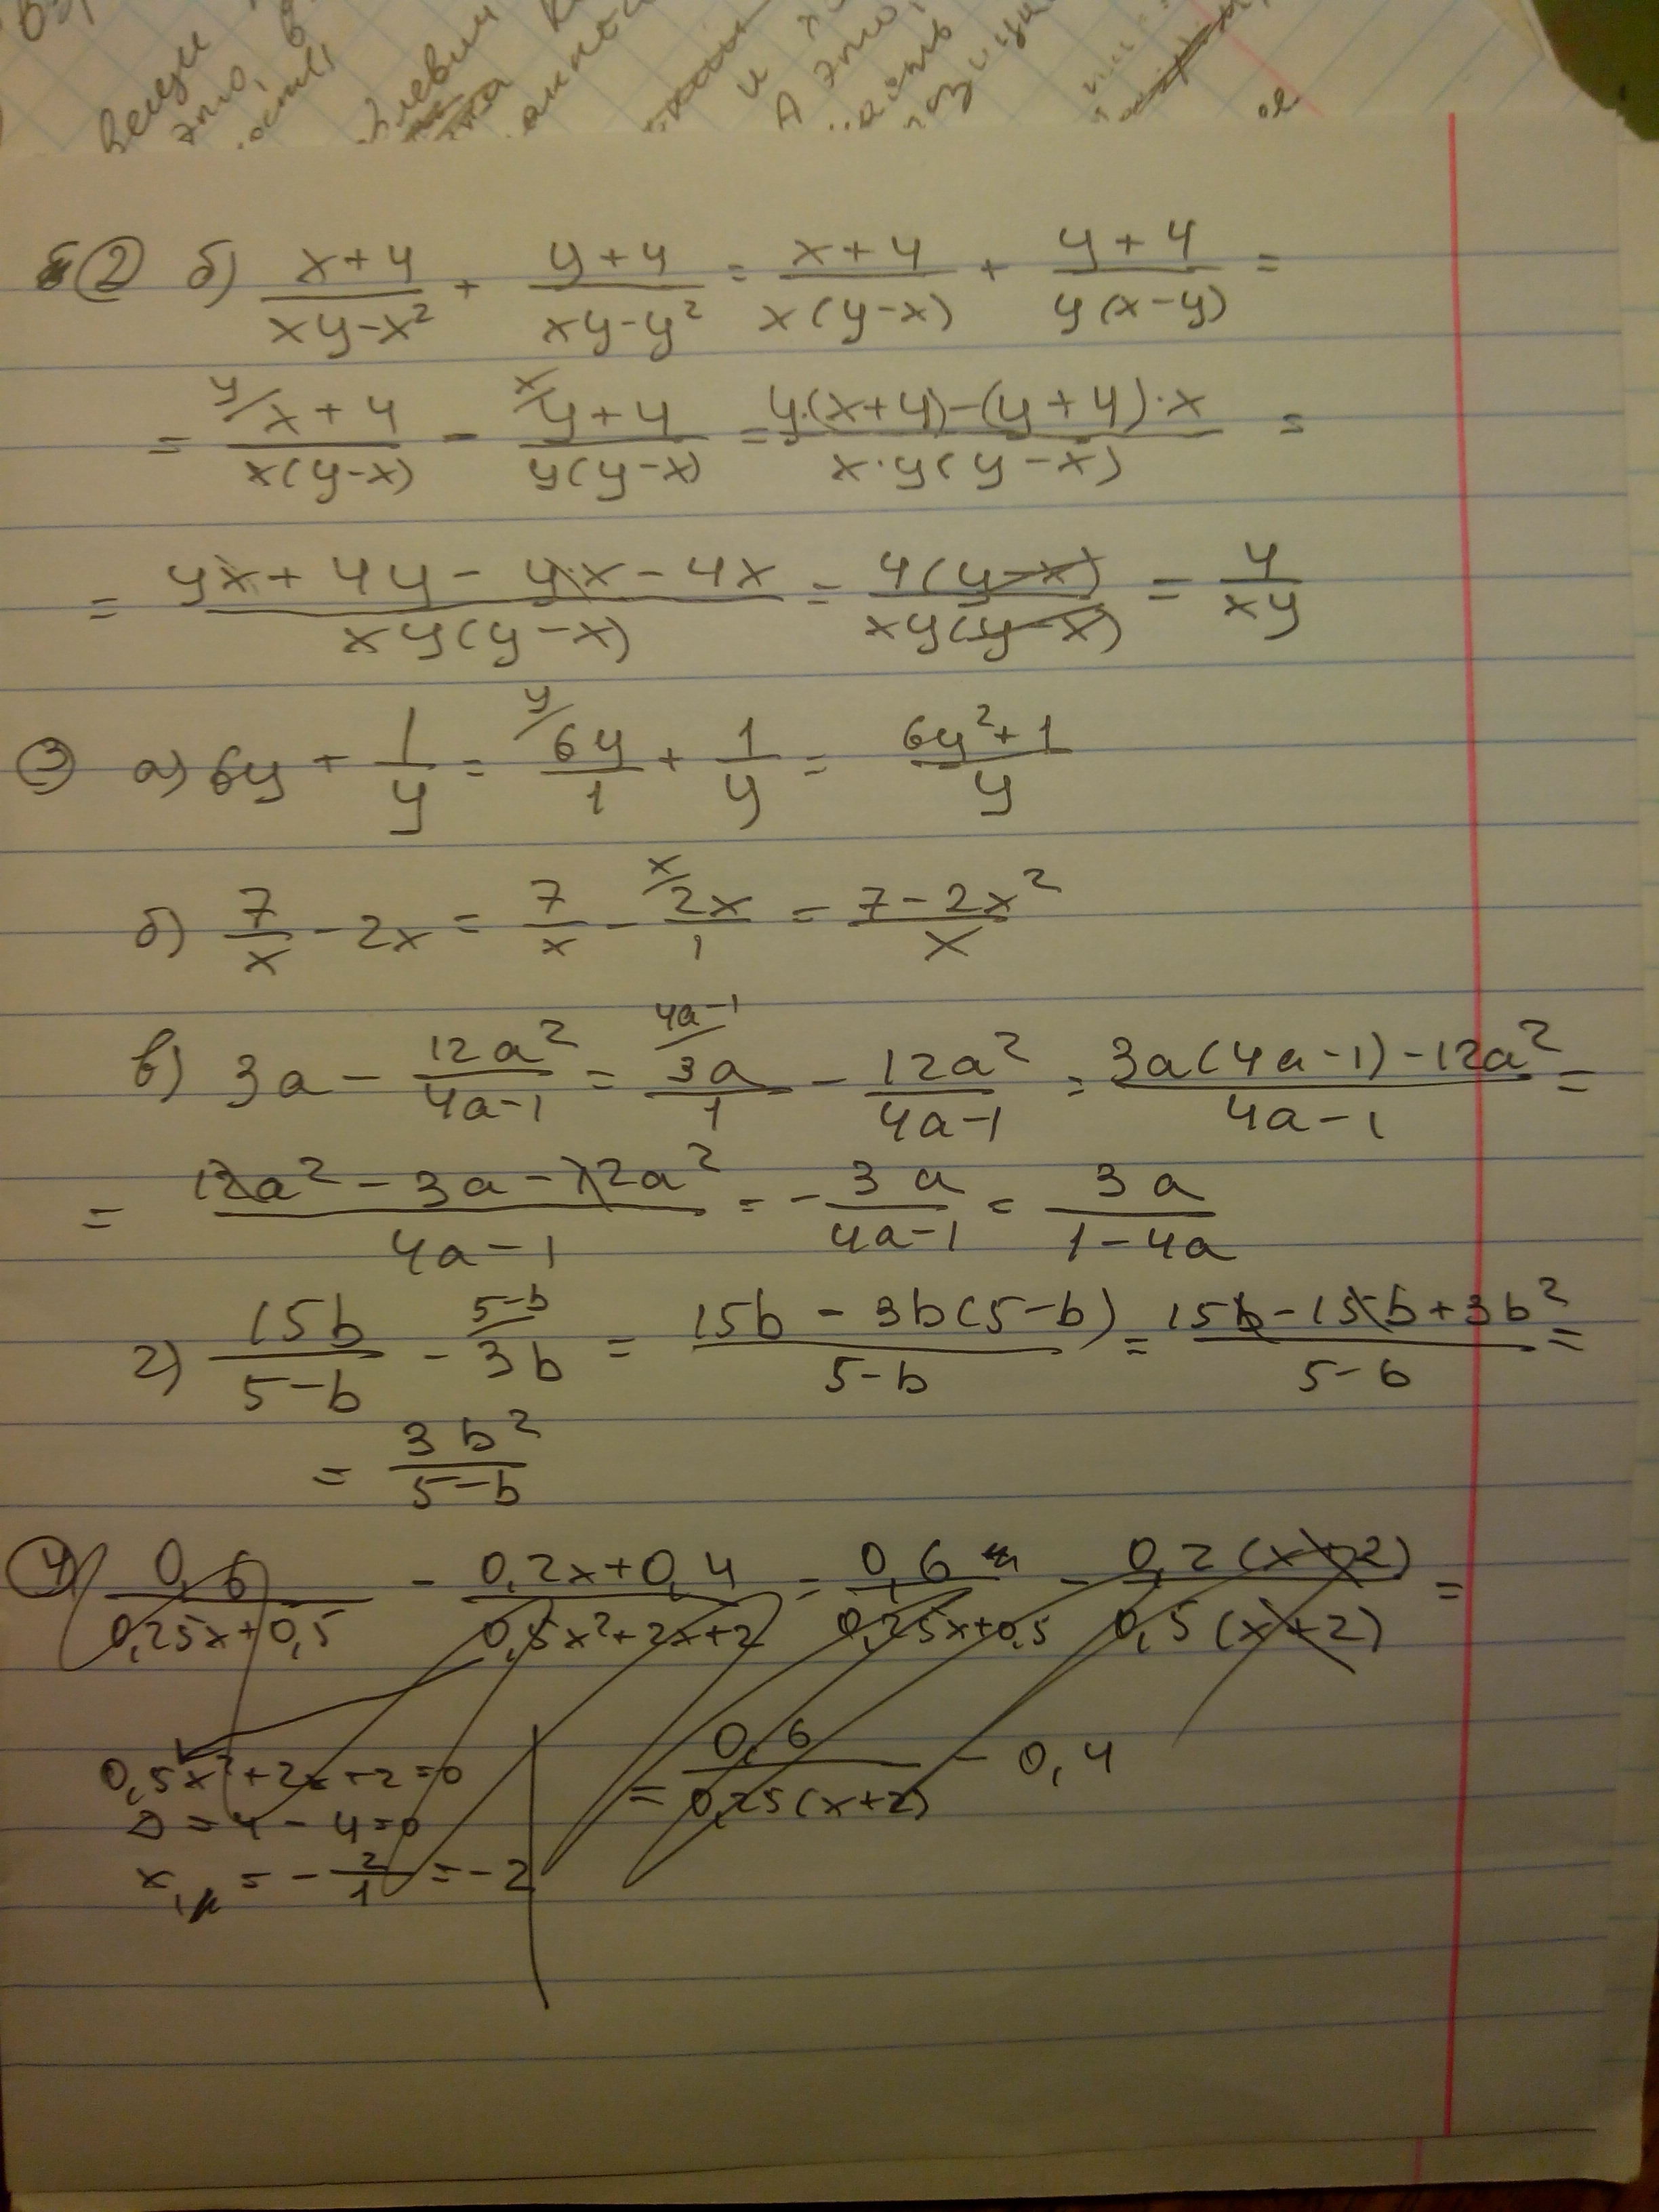 вещи
это,
ости
А это,
② б) (x+4)/(xy-x²) + (y+4)/(xy-y²) = (x+4)/(x(y-x)) + (y+4)/(y(x-y)) =
= y/ (x+4)/(x(y-x)) - x/ (y+4)/(y(y-x)) = (y·(x+4)-(y+4)·x)/(x·y(y-x)) =
= (yx+4y-y·x-4x)/(xy(y-x)) = (4(y-x))/(xy(y-x)) = 4/(xy)
③ а) 6y + 1/y = y/ 6y/1 + 1/y = (6y²+1)/y
б) 7/x - 2x = 7/x - x/ 2x/1 = (7-2x²)/x
в) 3a - 12a²/(4a-1) = 4a-1/ 3a/1 - 12a²/(4a-1) = (3a(4a-1)-12a²)/(4a-1) =
= (12a²-3a-12a²)/(4a-1) = -3a/(4a-1) = 3a/(1-4a)
г) 15b/(5-b) - 5-b/ 3b = (15b-3b(5-b))/(5-b) = (15b-15b+3b²)/(5-b) =
= 3b²/(5-b)
④ 0,6/(0,25x+0,5) - (0,2x+0,4)/(0,5x²+2x+2) = 0,6/(0,25x+0,5) - (0,2(x+2))/(0,5(x+2)) =
= 0,6/(0,25(x+2)) - 0,4
0,5x²+2x+2=0
D=4-4=0
x₁ = -2/1 = -2